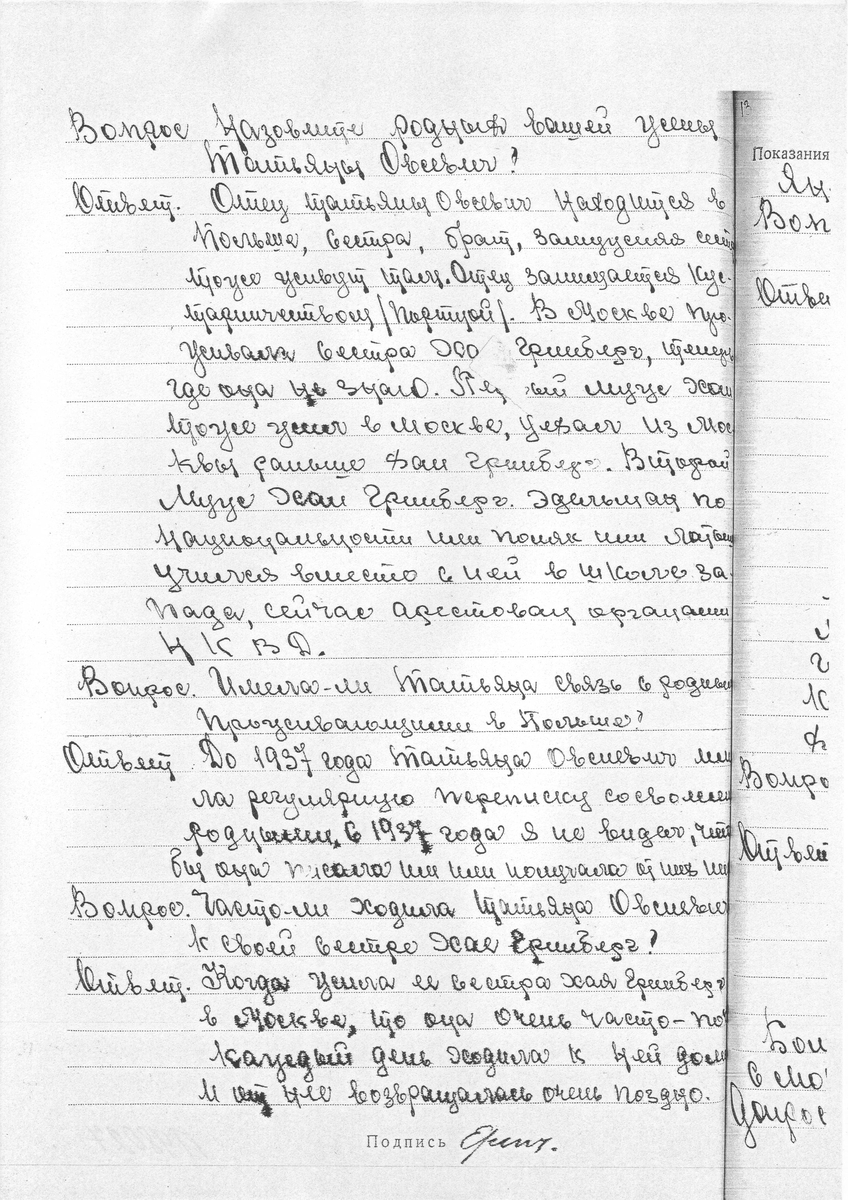 Вопрос Назовите родных вашей жены
Татьяны Овсиевич?
Ответ. Отец Татьяны Овсевич находится в
Польше, сестра, брат, замужняя сест
тоже живут там. Отец занимается кус-
тарничеством /портной/. В Москве про-
живала сестра Хая Гринберг, теперь
где она не знаю. Пер ый муж Хаи
тоже жил в Москве, уехал из Мос
квы раньше Хаи Гринберг. Второй
муж Хаи Гринберг. Эдельман по
национальности или поляк или латыш
учился вместе с ней в школе за-
пада, сейчас арестован органами
НКВД.
Вопрос. Имела-ли Татьяна связь с родным
проживающими в Польше?
Ответ До 1937 года Татьяна Овсиевич име
ла регулярную переписку со своими
родными, С 1937 года я не видел, что
бы она писала им или получала от них
Вопрос. Часто ли ходила Татьяна Овсиевич
к своей сестре Хае Гринберг?
Ответ. Когда жила ее сестра Хая Гринберг
в Москве, то она очень часто-по
каждый день ходила к ней дом
и от нее возвращалась очень поздно.
Подпись
13
Показания
Ян
Воп
Отве
Вопро
Ответ